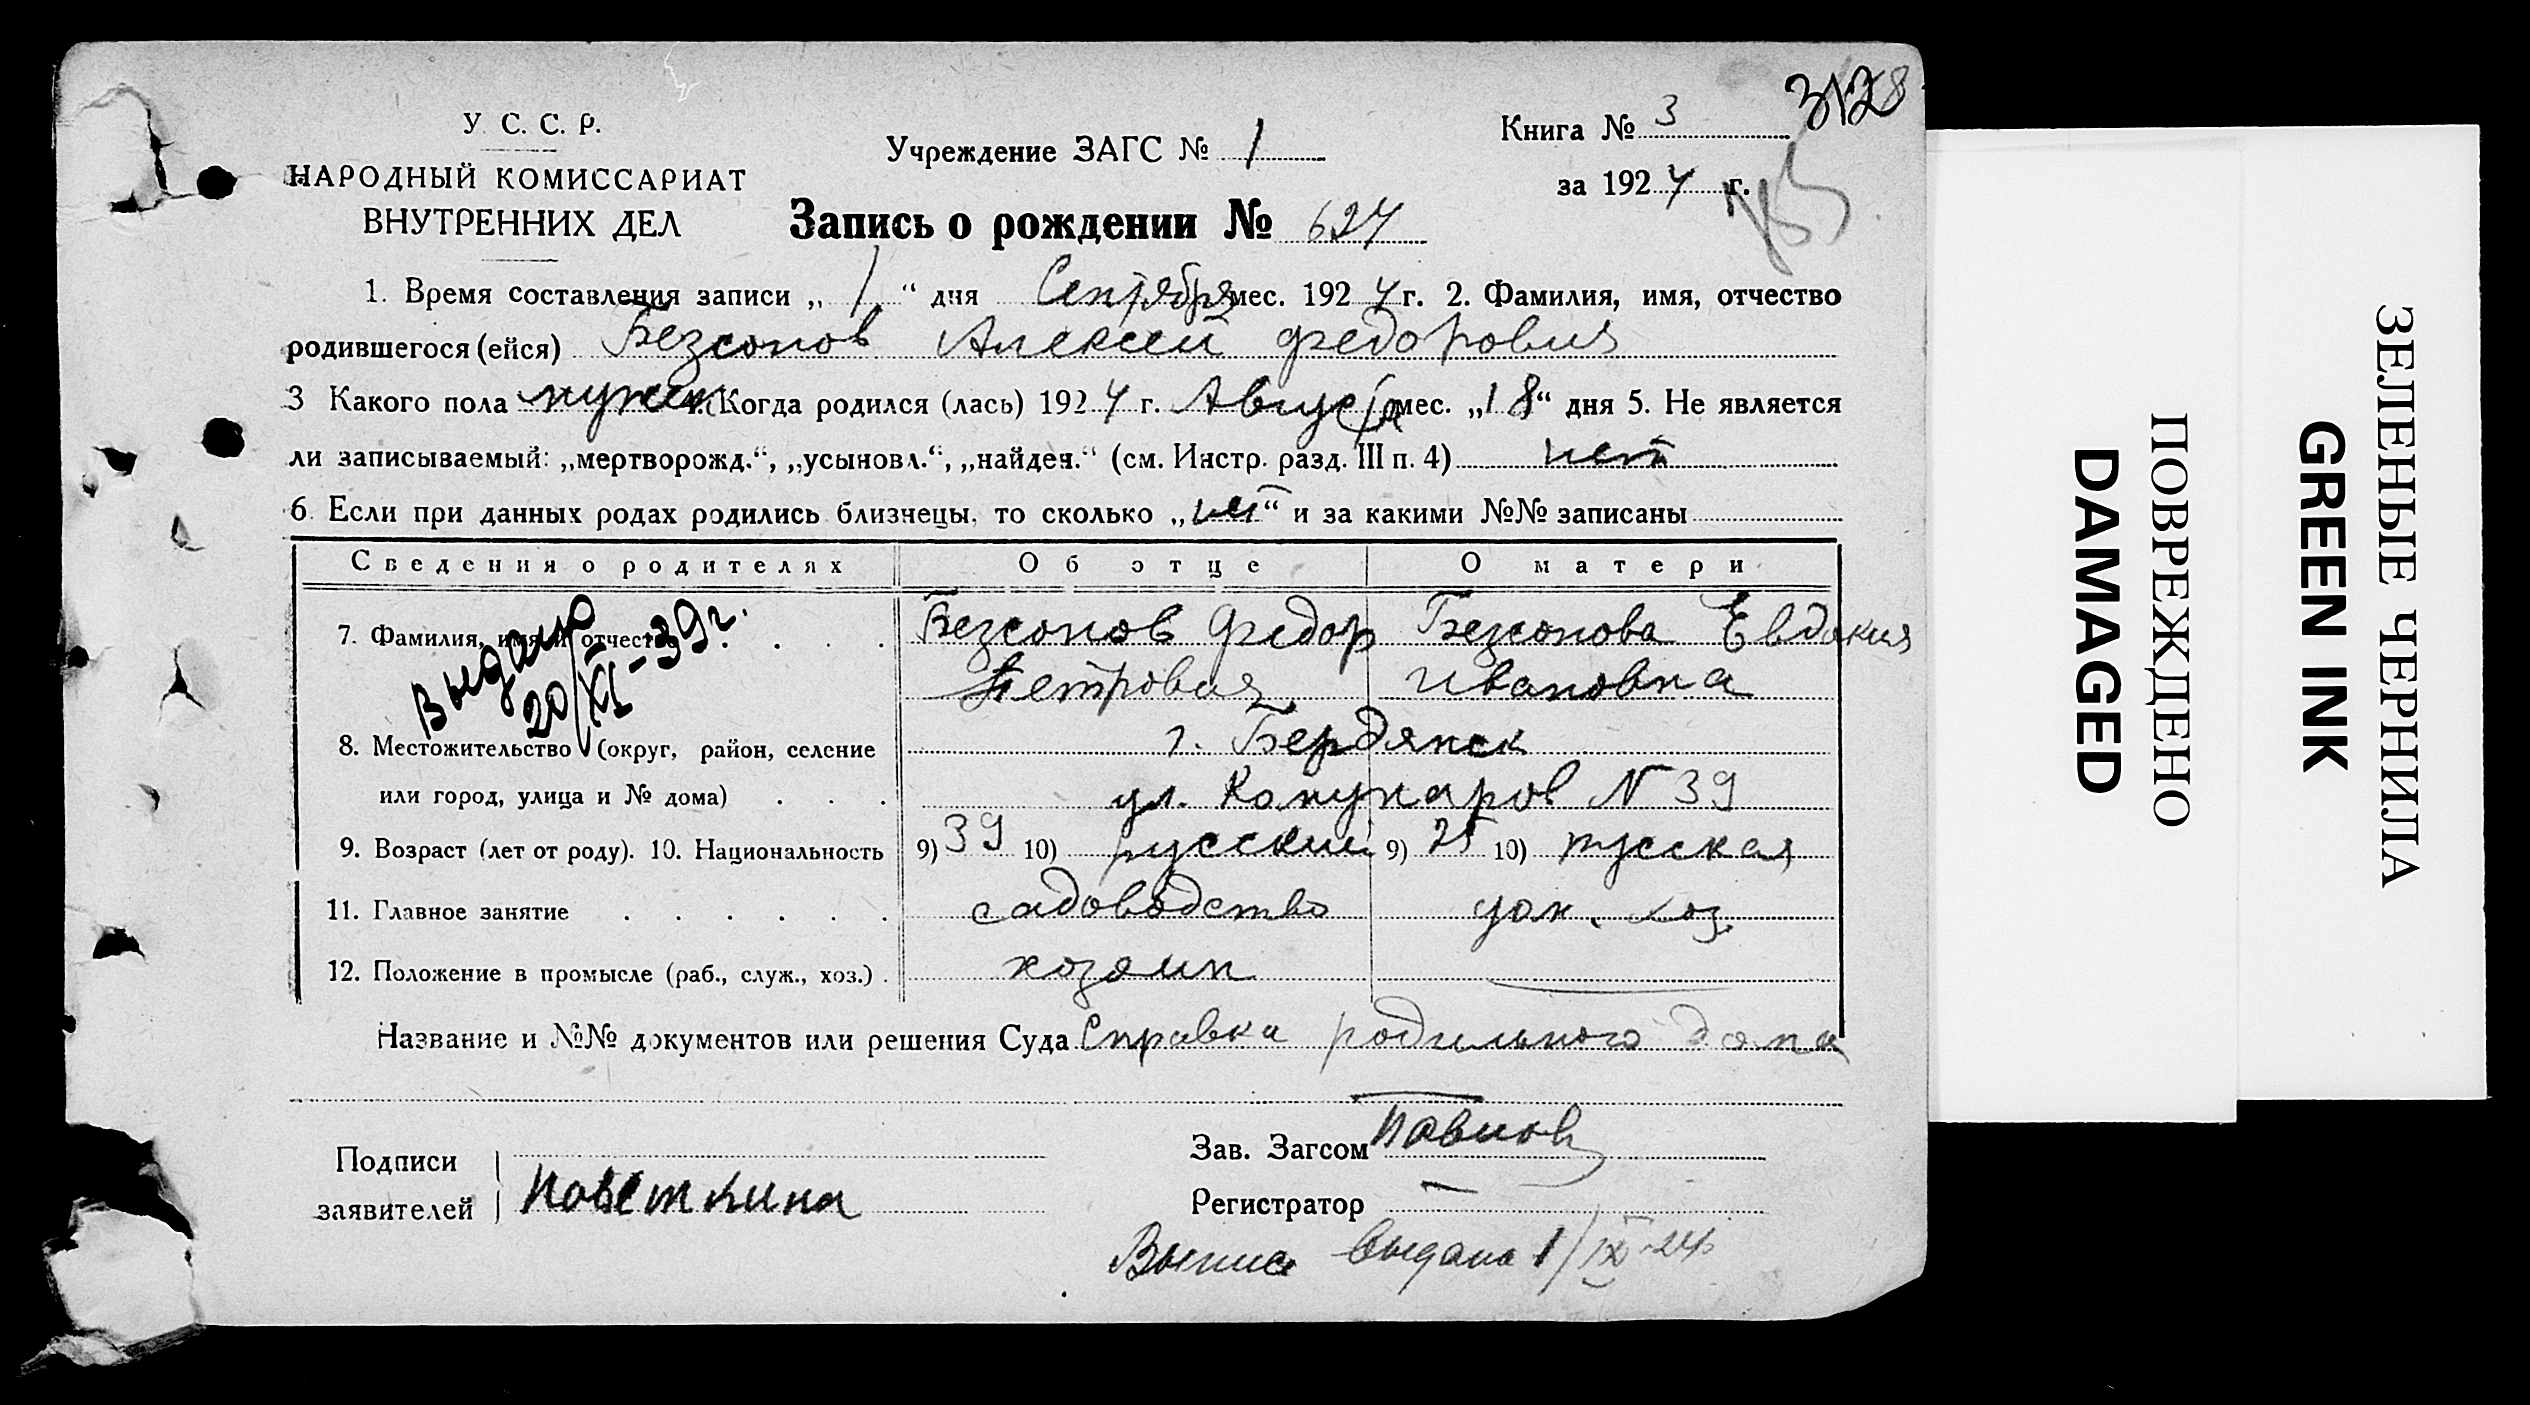 У. С. С. Р.
НАРОДНЫЙ КОМИССАРИАТ
ВНУТРЕННИХ ДЕЛ
Учреждение ЗАГС № 1
Книга № 3
3128
за 1924 г.
Запись о рождении № 624
1. Время составления записи „1“ дня Сентября мес. 1924 г. 2. Фамилия, имя, отчество
родившегося (ейся) Безсонов Алексей Федорович
3 Какого пола мужск 4. Когда родился (лась) 1924 г. Августа мес. „18“ дня 5. Не является
ли записываемый: „мертворожд.“, „усыновл.“, „найден.“ (см. Инстр. разд. III п. 4) нет
6. Если при данных родах родились близнецы, то сколько „нет“ и за какими №№ записаны
Сведения о родителях Об отце О матери
7. Фамилия, имя и отчество . . . . Безсонов Федор Безсонова Евдокия
Петрович Ивановна
Выдано
20/XI-39г.
8. Местожительство (округ, район, селение г. Бердянск
или город, улица и № дома) . . . ул. Комунаров N 39
9. Возраст (лет от роду). 10. Национальность 9) 39 10) русский 9) 25 10) русская
11. Главное занятие . . . . . . садоводство дом. хоз.
12. Положение в промысле (раб., служ., хоз.) . хозяин
Название и №№ документов или решения Суда Справка родильного дома
Подписи
заявителей Поветкина
Зав. Загсом Павлов
Регистратор
Выпись выдана 1/IX-24г
ПОВРЕЖДЕНО
DAMAGED
ЗЕЛЕНЫЕ ЧЕРНИЛА
GREEN INK